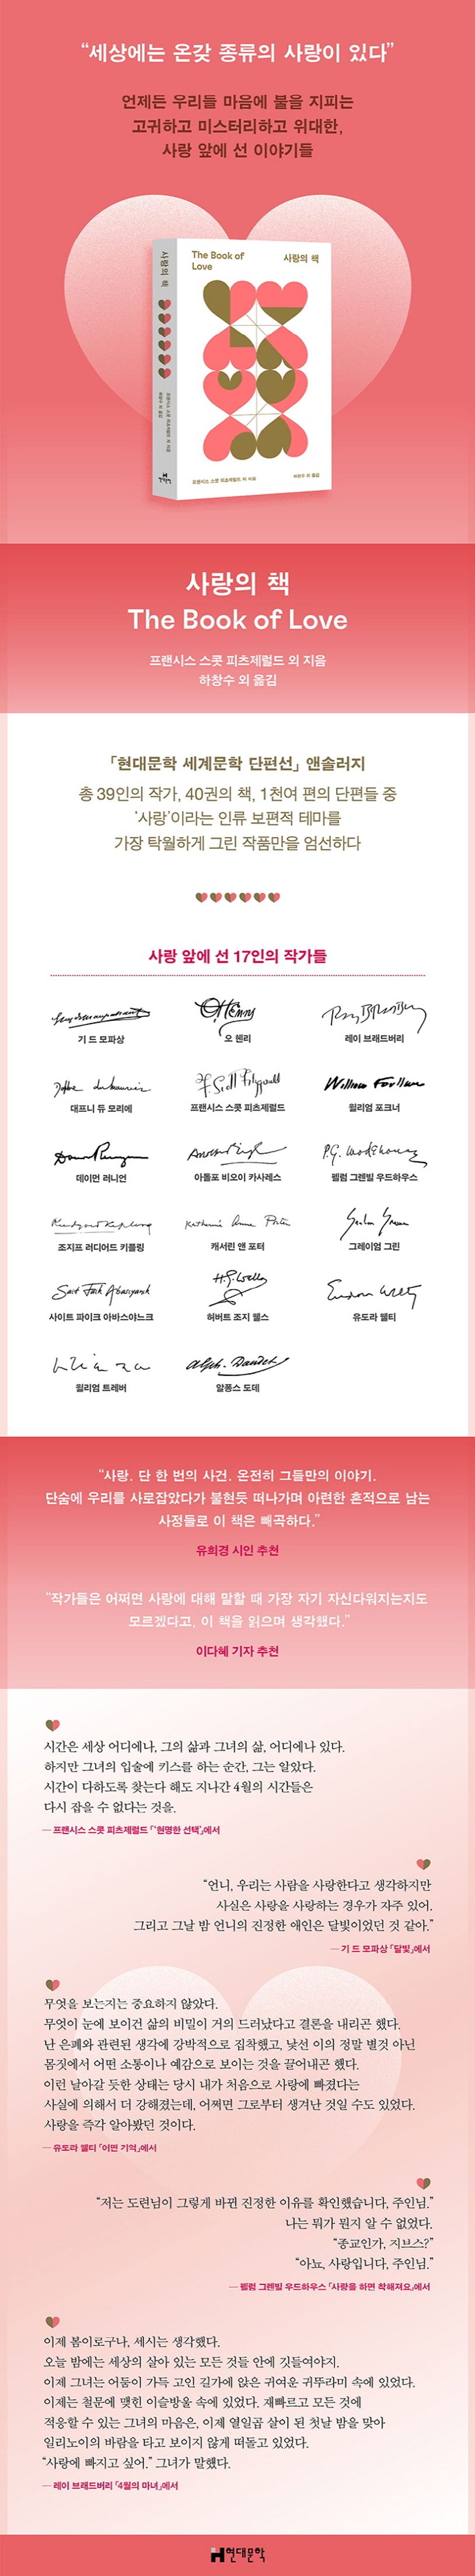 “세상에는 온갖 종류의 사랑이 있다”
언제든 우리들 마음에 불을 지피는
고귀하고 미스터리하고 위대한,
사랑 앞에 선 이야기들
The Book of
Love
사랑의 책
사랑의 책
프랜시스 스콧 피츠제럴드 외 지음
하창수 외 옮김
현대문학
프랜시스 스콧 피츠제럴드 외 지음
하창수 외 옮김
사랑의 책
The Book of Love
프랜시스 스콧 피츠제럴드 외 지음
하창수 외 옮김
「현대문학 세계문학 단편선」 앤솔러지
총 39인의 작가, 40권의 책, 1천여 편의 단편들 중
‘사랑’이라는 인류 보편적 테마를
가장 탁월하게 그린 작품만을 엄선하다
사랑 앞에 선 17인의 작가들
기 드 모파상
오 헨리
레이 브래드버리
대프니 듀 모리에
프랜시스 스콧 피츠제럴드
윌리엄 포크너
데이먼 러니언
아돌포 비오이 카사레스
펠럼 그렌빌 우드하우스
조지프 러디어드 키플링
캐서린 앤 포터
그레이엄 그린
사이트 파이크 아바스야느크
허버트 조지 웰스
유도라 웰티
윌리엄 트레버
알퐁스 도데
“사랑. 단 한 번의 사건. 온전히 그들만의 이야기.
단숨에 우리를 사로잡았다가 불현듯 떠나가며 아련한 흔적으로 남는
사정들로 이 책은 빼곡하다.”
유희경 시인 추천
“작가들은 어쩌면 사랑에 대해 말할 때 가장 자기 자신다워지는지도
모르겠다고, 이 책을 읽으며 생각했다.”
이다혜 기자 추천
시간은 세상 어디에나, 그의 삶과 그녀의 삶, 어디에나 있다.
하지만 그녀의 입술에 키스를 하는 순간, 그는 알았다.
시간이 다하도록 찾는다 해도 지나간 4월의 시간들은
다시 잡을 수 없다는 것을.
— 프랜시스 스콧 피츠제럴드 「‘현명한 선택’」에서
“언니, 우리는 사람을 사랑한다고 생각하지만
사실은 사랑을 사랑하는 경우가 자주 있어.
그리고 그날 밤 언니의 진정한 애인은 달빛이었던 것 같아.”
— 기 드 모파상 「달빛」에서
무엇을 보는지는 중요하지 않았다.
무엇이 눈에 보이건 삶의 비밀이 거의 드러났다고 결론을 내리곤 했다.
난 은폐와 관련된 생각에 강박적으로 집착했고, 낯선 이의 정말 별것 아닌
몸짓에서 어떤 소통이나 예감으로 보이는 것을 끌어내곤 했다.
이런 날아갈 듯한 상태는 당시 내가 처음으로 사랑에 빠졌다는
사실에 의해서 더 강해졌는데, 어쩌면 그로부터 생겨난 것일 수도 있었다.
사랑을 즉각 알아봤던 것이다.
— 유도라 웰티 「어떤 기억」에서
“저는 도련님이 그렇게 바뀐 진정한 이유를 확인했습니다, 주인님.”
나는 뭐가 뭔지 알 수 없었다.
“종교인가, 지브스?”
“아뇨, 사랑입니다, 주인님.”
— 펠럼 그렌빌 우드하우스 「사랑을 하면 착해져요」에서
이제 봄이로구나, 세시는 생각했다.
오늘 밤에는 세상의 살아 있는 모든 것들 안에 깃들여야지.
이제 그녀는 어둠이 가득 고인 길가에 앉은 귀여운 귀뚜라미 속에 있었다.
이제는 철문에 맺힌 이슬방울 속에 있었다. 재빠르고 모든 것에
적응할 수 있는 그녀의 마음은, 이제 열일곱 살이 된 첫날 밤을 맞아
일리노이의 바람을 타고 보이지 않게 떠돌고 있었다.
“사랑에 빠지고 싶어.” 그녀가 말했다.
— 레이 브래드버리 「4월의 마녀」에서
현대문학